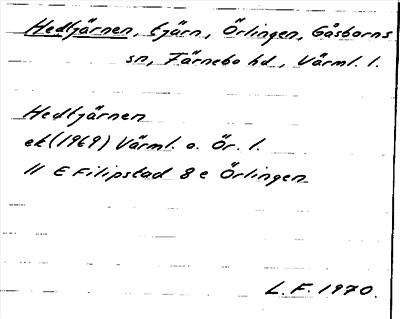 Hedtjärnen, tjärn, Örlingen, Gåsborns
sn, Färnebo hd, Värml. l.
Hedtjärnen
ek (1969) Värml. o. Ör. l.
11 E Filipstad 8 e Örlingen
L. F. 1970.